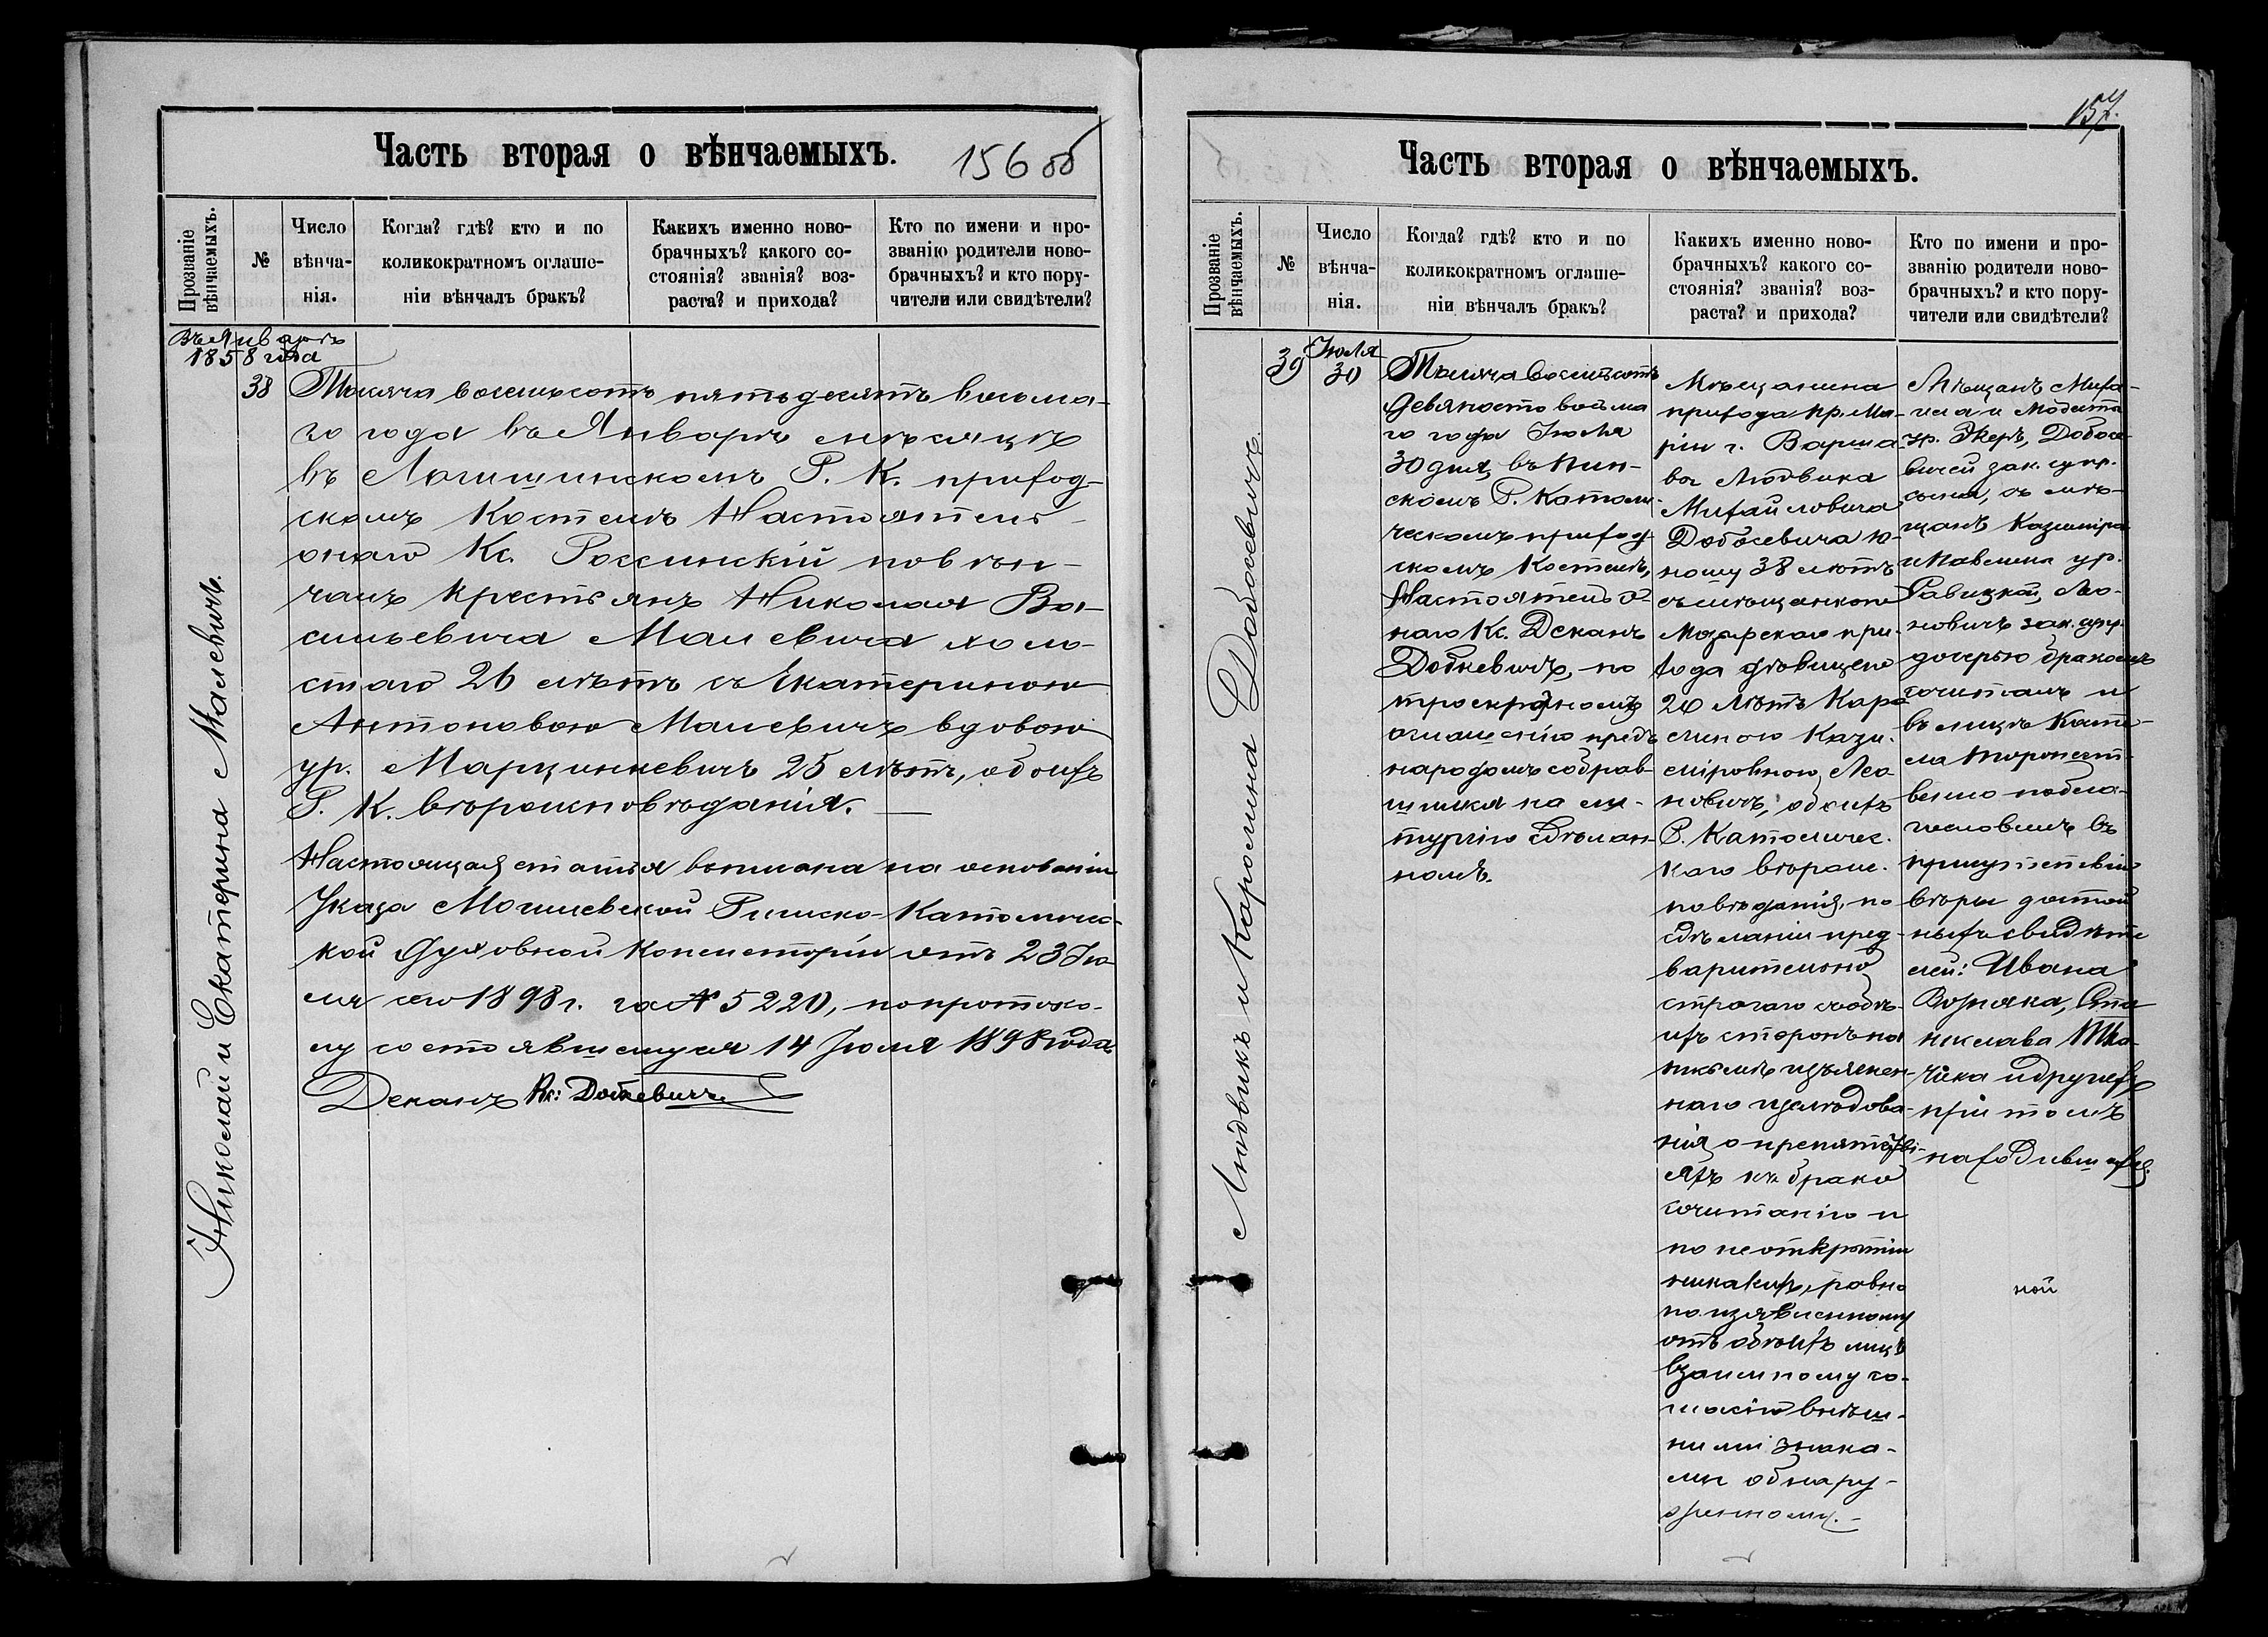 Часть вторая о вѣнчаемыхъ.
156 об
Прозваніе вѣнчаемыхъ.
№
Число вѣнча-нія.
Когда? гдѣ? кто и по
коликократномъ оглаше-
ніи вѣнчалъ бракъ?
Какихъ именно ново-
брачныхъ? какого со-
стоянія? званія? воз-
раста? и прихода?
Кто по имени и про-
званію родители ново-
брачныхъ? и кто пору-
чители или свидѣтели?
Въ Январѣ
1858 года
38
Николай и Екатерина Малевичъ.
Тысяча восемьсотъ пятьдесятъ восьма-
го года въ Январѣ мѣсяцѣ
въ Логишинскомъ Р. К. приход-
скомъ Костелѣ Настоятель
онаго Кс. Россинскій повѣн-
чалъ крестьянъ Николая Ва-
сильевича Малевича холо-
стаго 26 лѣтъ съ Екатериною
Антоновою Малевичъ вдовою
ур. Марцинкевичъ 25 лѣтъ, обоихъ
Р. К. вѣроисповѣданія. —
Настоящая статья вписана на основаніи
Указа Могилевской Римско-Католичес-
кой Духовной Консисторіи отъ 23 Ію-
ля сего 1898 г. за № 5220, по протоко-
лу состоявшемуся 14 Іюля 1898 года
Деканъ Кс: Добкевичъ
157.
Часть вторая о вѣнчаемыхъ.
Прозваніе вѣнчаемыхъ.
№
Число вѣнча-нія.
Когда? гдѣ? кто и по
коликократномъ оглаше-
ніи вѣнчалъ бракъ?
Какихъ именно ново-
брачныхъ? какого со-
стоянія? званія? воз-
раста? и прихода?
Кто по имени и про-
званію родители ново-
брачныхъ? и кто пору-
чители или свидѣтели?
Людвикъ и Каролина Добосевичъ.
39
Іюля
30
Тысяча восемьсотъ
девяносто восьма
го года Іюля
30 дня, въ Пин-
скомъ Р. Католи-
ческомъ приход
скомъ Костелѣ,
Настоятель о-
наго Кс. Деканъ
Добкевичъ, по
троекратномъ
оглашеніи предъ
народомъ собрав-
шимся на ли-
тургію сдѣлан-
номъ.
Мѣщанина
прихода пр. Ма-
ріи г. Варша
вы Людвика
Михайловича
Добосевича ю-
ношу 38 лѣтъ
съ мѣщанкою
Мозырскаго при-
хода дѣвицею
20 лѣтъ Каро
линою Кази-
міровною Лео
новичъ, обоихъ
Р. Католичес.
каго вѣроис.
повѣданія, по
сдѣланіи пред-
варительно
строгаго съобѣ-
ихъ сторонъ на
письмѣ изъяснен-
наго изслѣдова-
нія о препятстві-
яхъ къ брако
сочитанію и
по неоткрытіи
никакихъ, равно
по изъявленному
отъ обоихъ лицъ
взаимному со-
гласію внѣш-
ними знака-
ми обнару-
женному. —
Мѣщанъ Миха-
ила и Модесты
ур. Экертъ, Добосе-
вичей зак. супр.
сына, съ мѣ-
щанъ Казиміра
и Павлины ур.
Равицкой, Лео-
новичъ зак. супр.
дочерью бракомъ
сочиталъ и
въ лицѣ Косте-
ла торжест-
венно побла-
гословилъ въ
присутствіи
вѣры достой
ныхъ свидѣте
лей: Ивана
Возняка, Ста
нислава Тка-
чика и другихъ
при томъ
находившихся.
ной